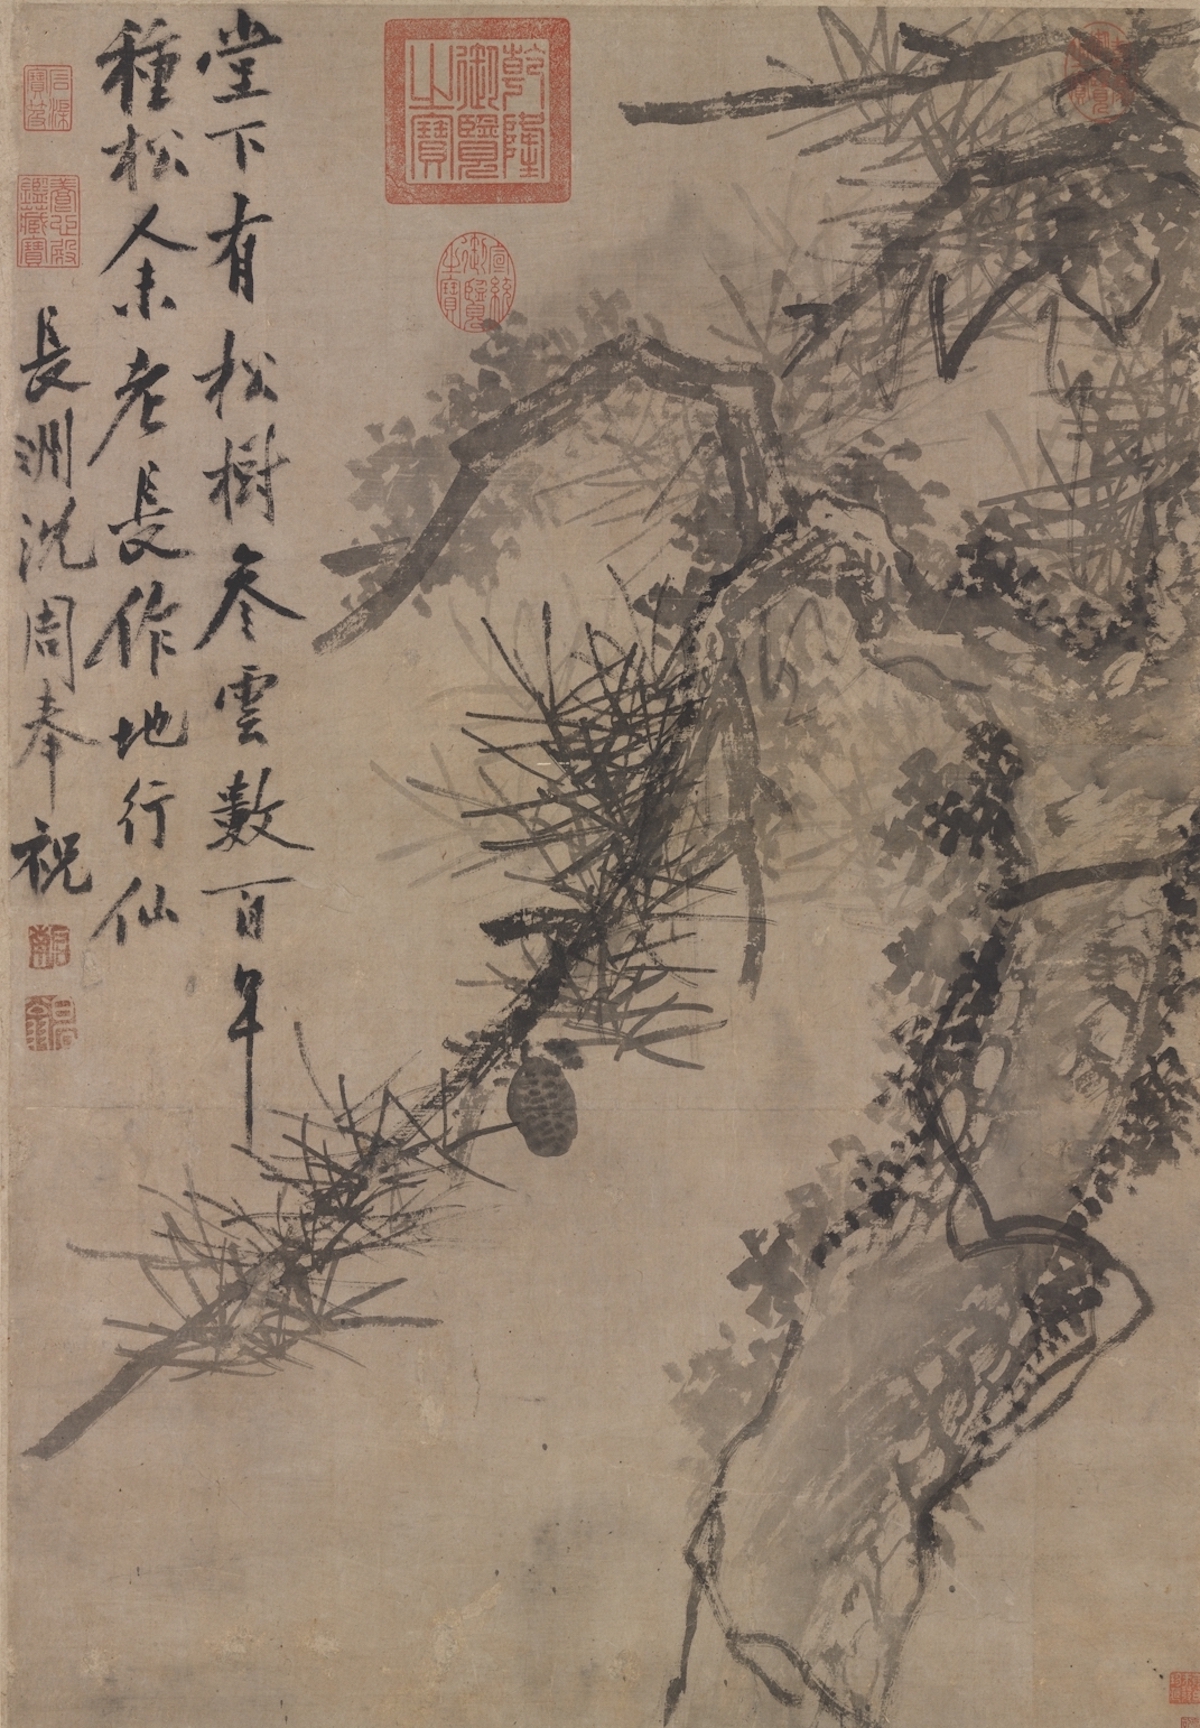 堂下有松樹参雲數百年
種松人未老長作地行仙
長洲沈周奉祝
乾隆御覽之寶
宣統御覽之寶
石渠寶笈
養心殿鑑藏寶